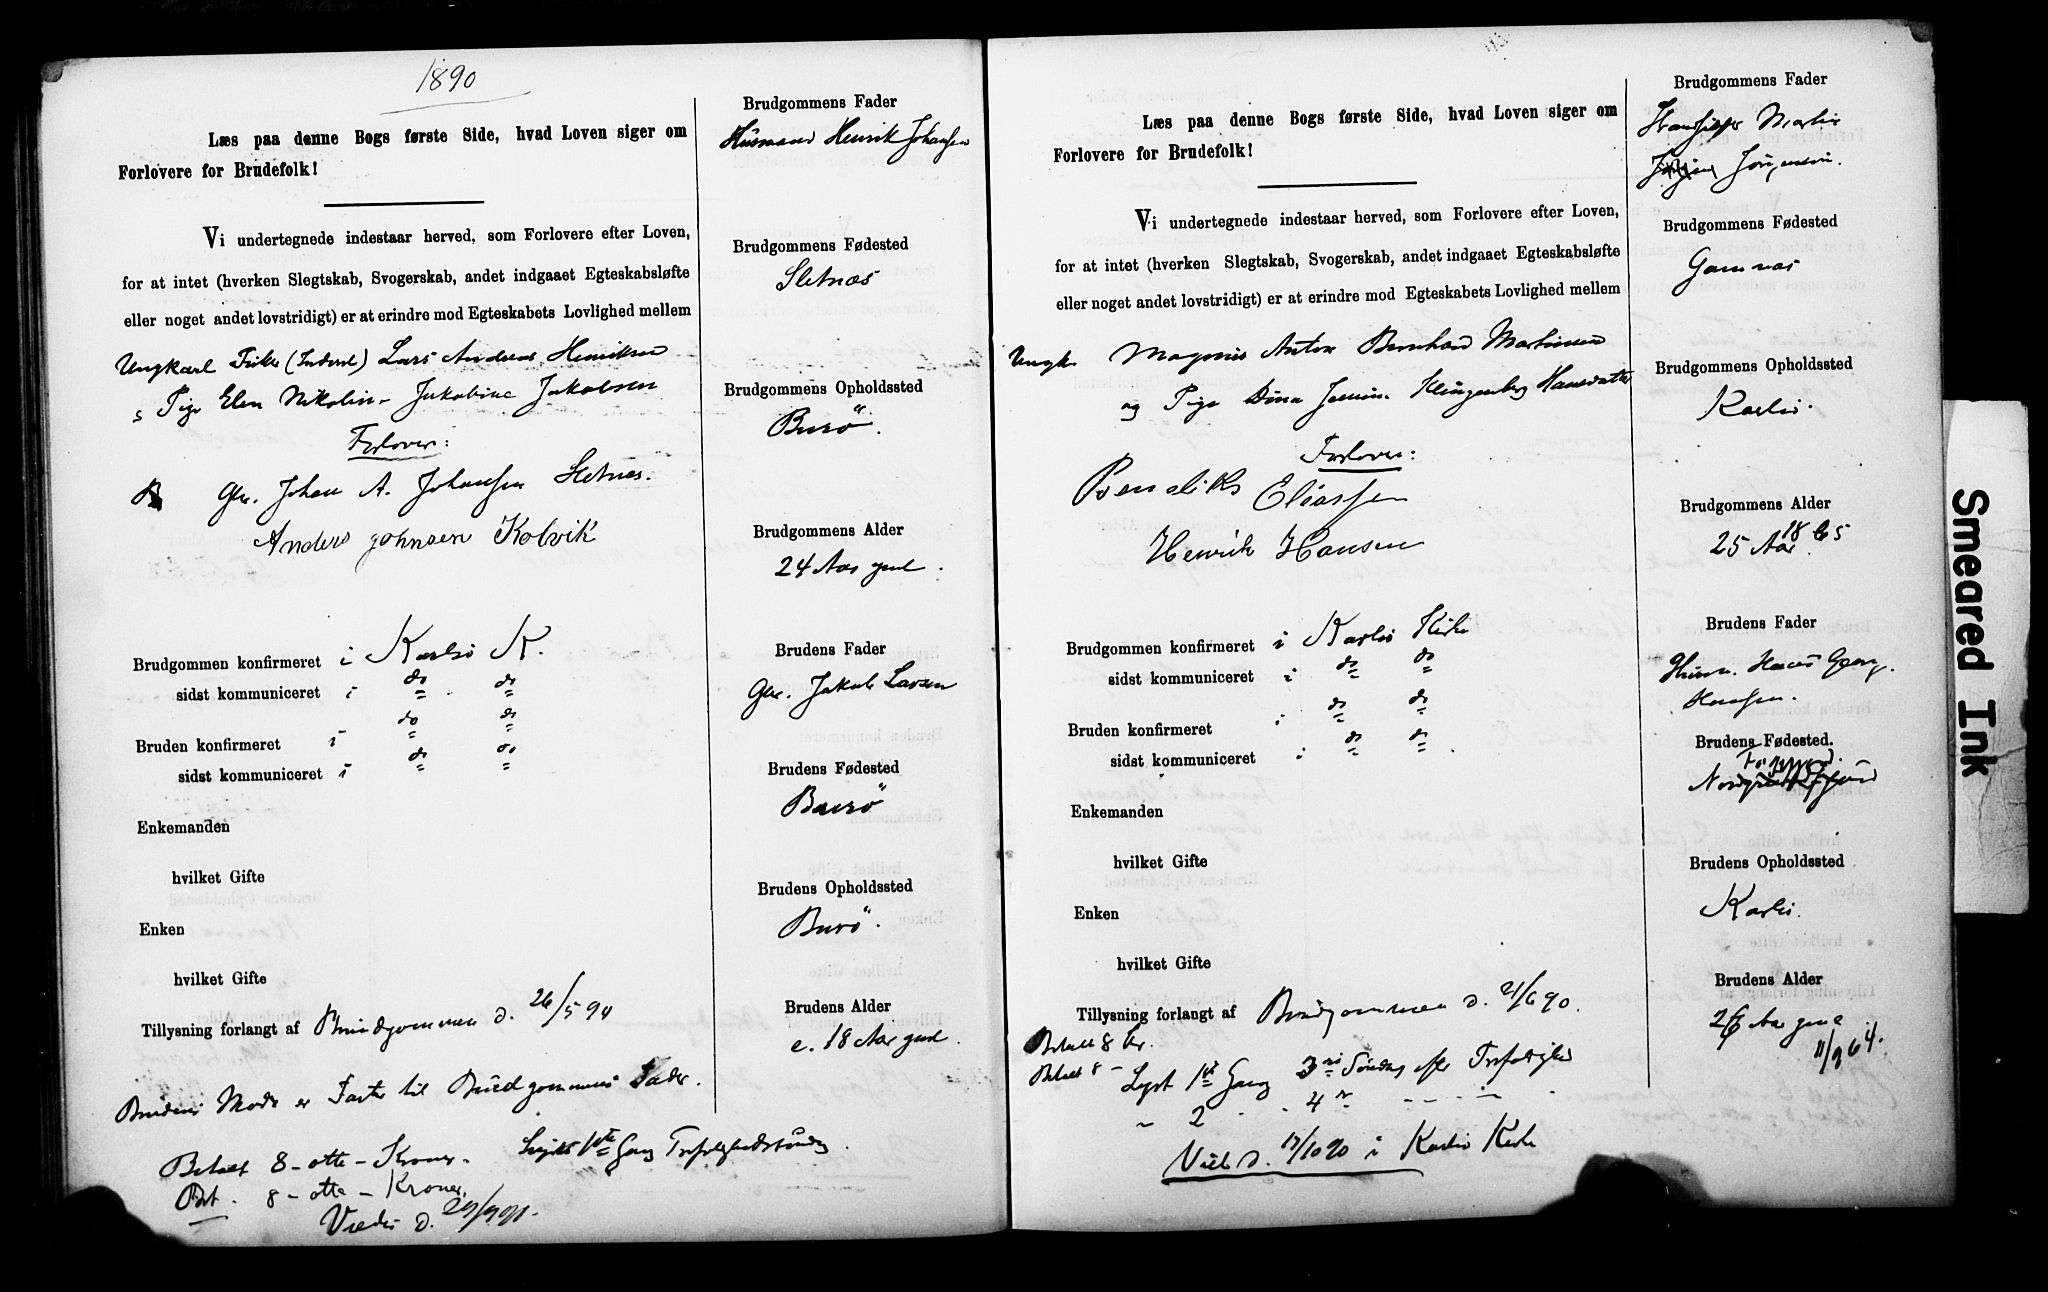 1890
Læs paa denne Bogs første Side, hvad Loven siger om
Forlovere for Brudefolk!
Vi undertegnede indestaar herved, som Forlovere efter Loven,
for at intet (hverken Slegtskab, Svogerskab, andet indgaaet Egteskabsløfte
eller noget andet lovstridigt) er at erindre mod Egteskabets Lovlighed mellem
Ungkarl Fisker Lars Andreas Henriksen
Pige Elen Nikoline Jakobine Jakobsen
Forlover:
Johan A. Johansen Sletnæs.
Anders Johnsen Kolvik
Brudgommen konfirmeret i Karlsø K.
sidst kommuniceret i do do
Bruden konfirmeret i do do
sidst kommuniceret i do do
Enkemanden
hvilket Gifte
Enken
hvilket Gifte
Tillysning forlangt af Brudgommen d. 26/5 90
Brudens Moder er Faster til Brudgommens Fader.
Betalt 8 - otte - Kroner.
8 - otte - Kroner.
Lyst 1ste Gang Trefoldighedssøndag.
Viede d.
Brudgommens Fader
Husmand Henrik Johansen
Brudgommens Fødested
Sletnæs
Brudgommens Opholdssted
Burø.
Brudgommens Alder
24 Aar gml.
Brudens Fader
Gbr. Jakob Larsen
Brudens Fødested
Burø
Brudens Opholdssted
Burø.
Brudens Alder
c. 18 Aar gml.
Læs paa denne Bogs første Side, hvad Loven siger om
Forlovere for Brudefolk!
Vi undertegnede indestaar herved, som Forlovere efter Loven,
for at intet (hverken Slegtskab, Svogerskab, andet indgaaet Egteskabsløfte
eller noget andet lovstridigt) er at erindre mod Egteskabets Lovlighed mellem
Ungk. Magnus Anton Bernhard Martinsen
og Pige Dina Klingenberg Hansdatter
Forlover:
Bendiks Eliassen
Henrik Hansen
Brudgommen konfirmeret i Karlsø Kirke
sidst kommuniceret i do do
Bruden konfirmeret i do do
sidst kommuniceret i do do
Enkemanden
hvilket Gifte
Enken
hvilket Gifte
Tillysning forlangt af Brudgommen d. 21/6 90.
Betalt 8 kr.
Betalt 8 -
Lyst 1ste Gang 3die Søndag efter Trefoldighed
- 2 - - 4de - - - -
Viet d. 17/10 90 i Karlsø Kirke
Brudgommens Fader
Martin
Jørgensen.
Brudgommens Fødested
Gamnæs
Brudgommens Opholdssted
Karlsø.
Brudgommens Alder
25 Aar. 1865
Brudens Fader
Husm. Hans Georg
Hansen.
Brudens Fødested.
Brudens Opholdssted
Karlsø.
Brudens Alder
26 Aar gml
11/9 64.
Smeared Ink